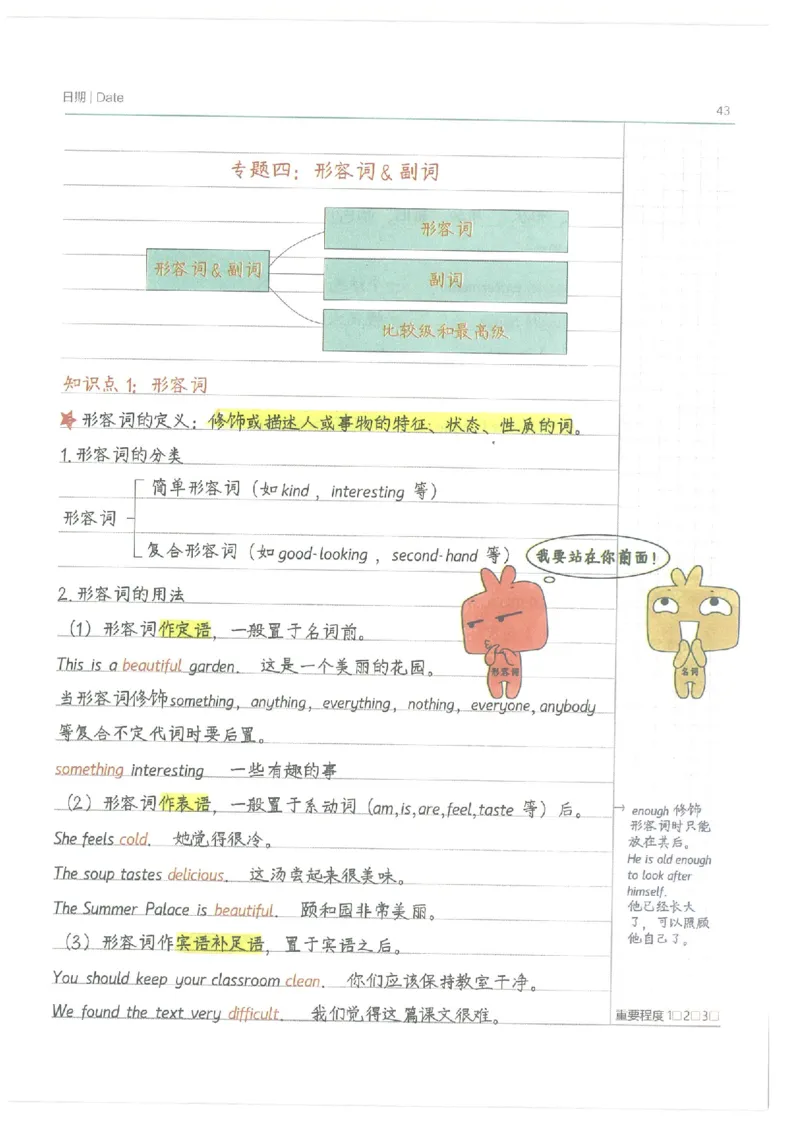 日期 | Date
43
专题四：形容词&副词
形容词&副词
形容词
副词
比较级和最高级
知识点 1：形容词
形容词的定义：修饰或描述人或事物的特征、状态、性质的词。
1.形容词的分类
形容词
简单形容词（如 kind , interesting 等）
复合形容词（如 good-looking , second-hand 等）
我要站在你前面！
形容词
名词
2.形容词的用法
（1）形容词作定语，一般置于名词前。
This is a beautiful garden. 这是一个美丽的花园。
当形容词修饰 something, anything, everything, nothing, everyone, anybody
等复合不定代词时要后置。
something interesting 一些有趣的事
（2）形容词作表语，一般置于系动词（am,is,are,feel,taste 等）后。
She feels cold. 她觉得很冷。
The soup tastes delicious. 这汤尝起来很美味。
The Summer Palace is beautiful. 颐和园非常美丽。
（3）形容词作宾语补足语，置于宾语之后。
You should keep your classroom clean. 你们应该保持教室干净。
We found the text very difficult. 我们觉得这篇课文很难。
enough 修饰
形容词时只能
放在其后。
He is old enough
to look after
himself.
他已经长大
了，可以照顾
他自己了。
重要程度 1□2□3□